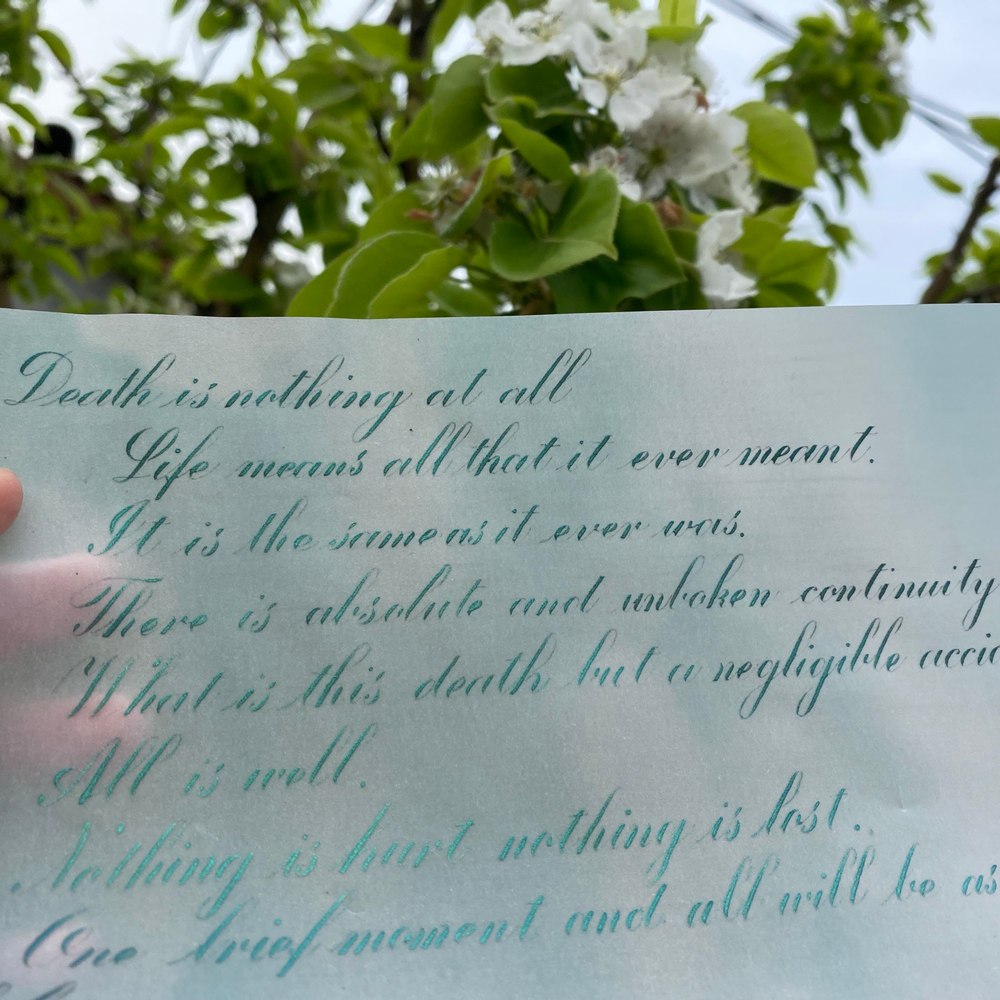 Death is nothing at all
Life means all that it ever meant.
It is the same as it ever was.
There is absolute and unboken continuity
What is this death but a negligible
All is well.
Nothing is hurt nothing is lost.
One brief moment and all will be as